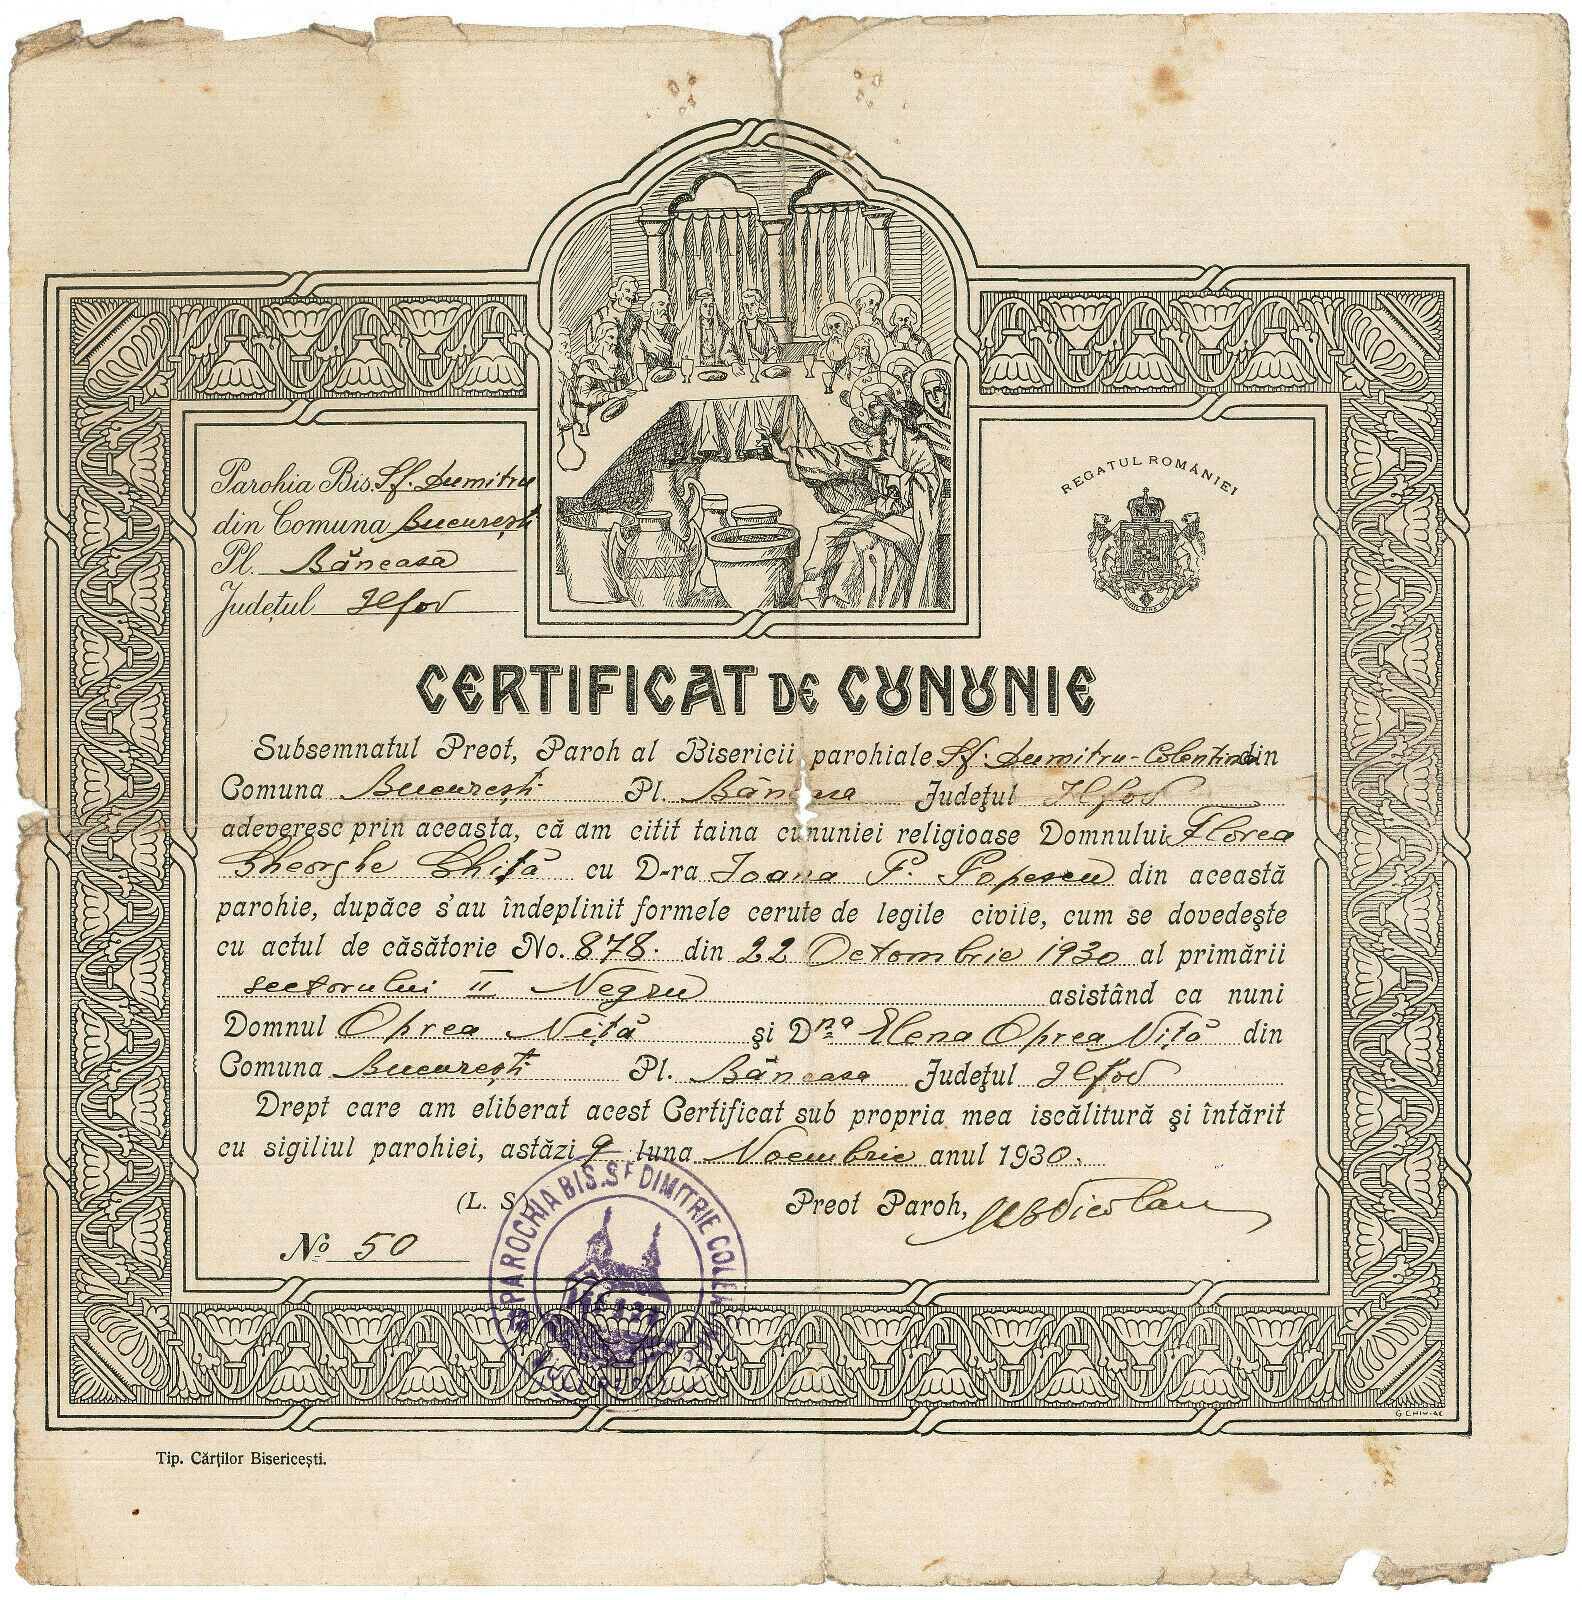 Parohia Bis. Sf. Dumitru
din Comuna București
Pl. Băneasa
Județul Ilfov
REGATUL ROMÂNIEI
CERTIFICAT DE CUNUNIE
Subsemnatul Preot, Paroh al Bisericii parohiale Sf. Dumitru-Colentina din
Comuna București Pl. Băneasa Județul Ilfov
adeveresc prin aceasta, că am citit taina cununiei religioase Domnului Florea
Gheorghe Ghiță cu D-ra Ioana P. Popescu din această
parohie, dupăce s'au îndeplinit formele cerute de legile civile, cum se dovedește
cu actul de căsătorie No. 878. din 22 Octombrie 1930 al primării
sectorului II Negru asistând ca nuni
Domnul Oprea Niță și Dna Elena Oprea Niță din
Comuna București Pl. Băneasa Județul Ilfov
Drept care am eliberat acest Certificat sub propria mea iscălitură și întărit
cu sigiliul parohiei, astăzi 9 luna Noembrie anul 1930.
(L. S.) Preot Paroh,
No 50
PAROCHIA BIS. Sf DIMITRIE
Tip. Cărților Bisericești.